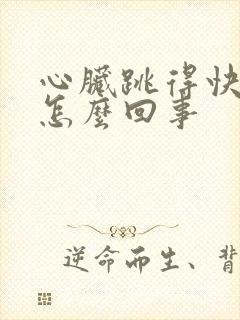 心臟跳得快
怎麼回事
逆命而生、背